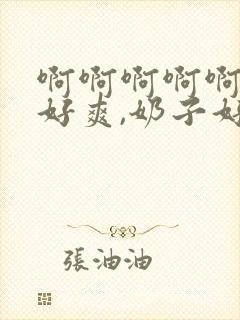 啊啊啊啊啊
好爽,奶子好
張油油